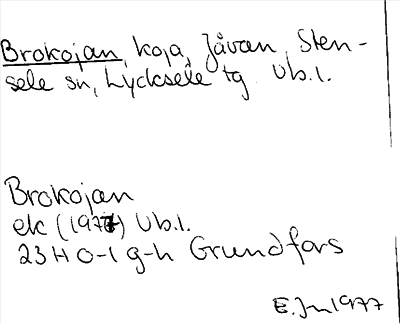 Brokojan, koja, Jåvan, Sten-
sele sn, Lycksele tg. Vb.l.
Brokojan
ek (1977) Vb.l.
23H 0-1 g-h Grundfors
E.Jn 1977